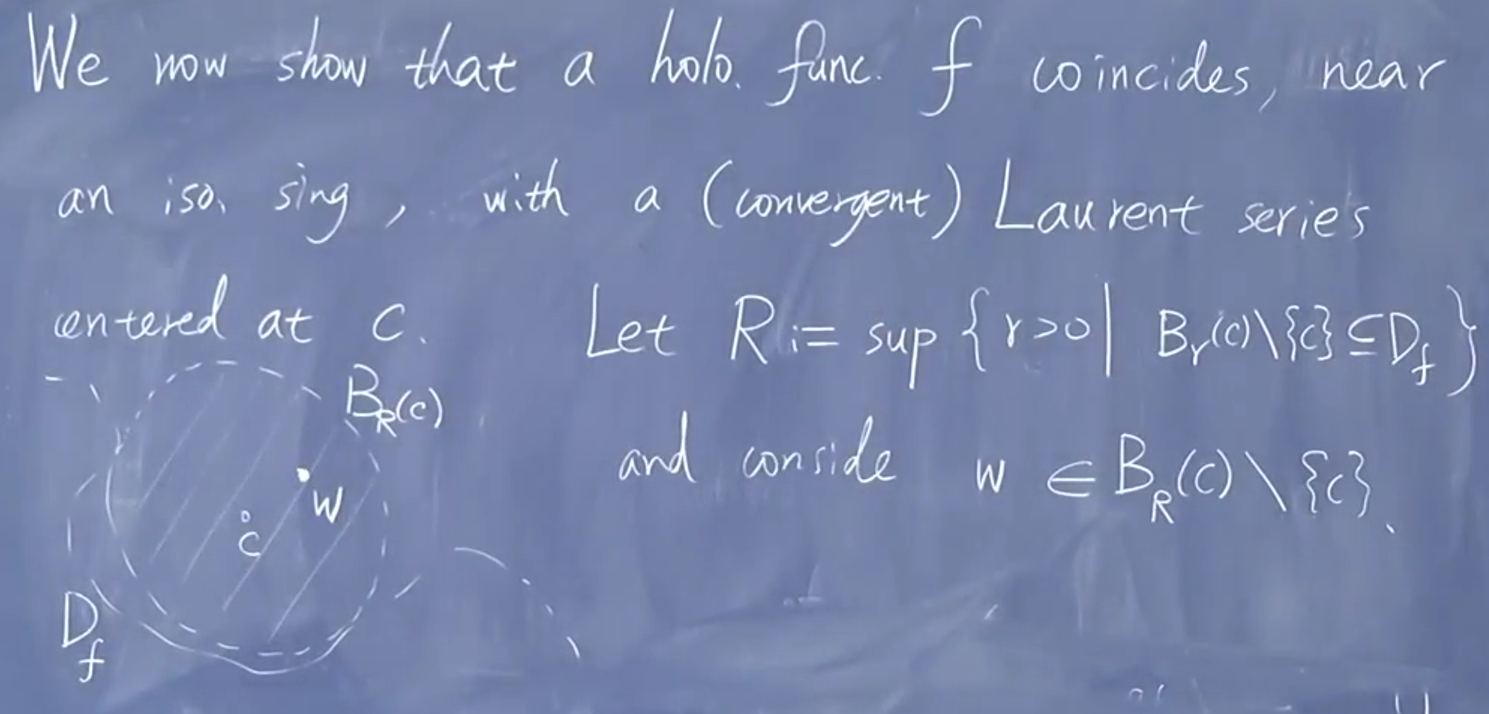 We now show that a holo. func. f coincides, near
an iso. sing, with a (convergent) Laurent series
centered at c. Let R := sup {r>0 | Br(c)\{c} ⊆ Df}
BR(c)
and conside w ∈ BR(c) \ {c}.
w
c
Df